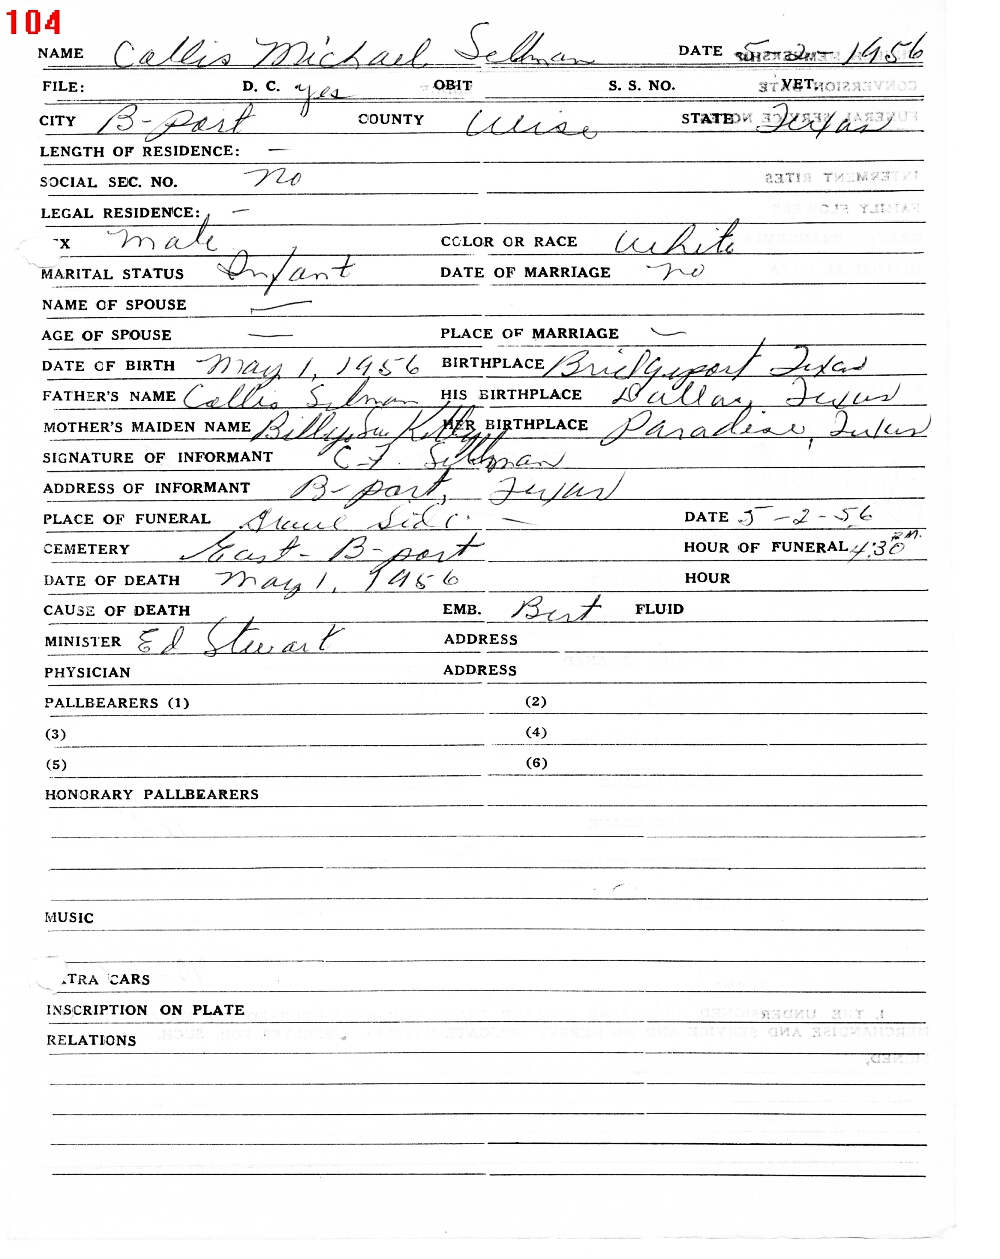 104
NAME Callis Michael Sellman DATE 5-2-1956
FILE: D. C. yes OBIT S. S. NO. VET.
CITY B-port COUNTY Wise STATE Texas
LENGTH OF RESIDENCE: —
SOCIAL SEC. NO. no
LEGAL RESIDENCE: —
X male COLOR OR RACE White
MARITAL STATUS Infant DATE OF MARRIAGE no
NAME OF SPOUSE —
AGE OF SPOUSE — PLACE OF MARRIAGE —
DATE OF BIRTH May 1, 1956 BIRTHPLACE Bridgeport Texas
FATHER'S NAME Callis Selman HIS BIRTHPLACE Dallas, Texas
MOTHER'S MAIDEN NAME Billy Sue HER BIRTHPLACE Paradise, Texas
SIGNATURE OF INFORMANT C. F. Sellman
ADDRESS OF INFORMANT B-port, Texas
PLACE OF FUNERAL Grave Side — DATE 5-2-56
CEMETERY East - B-port HOUR OF FUNERAL 4:30 P.M.
DATE OF DEATH May 1, 1956 HOUR
CAUSE OF DEATH EMB. Burt FLUID
MINISTER Ed Stewart ADDRESS
PHYSICIAN ADDRESS
PALLBEARERS (1) (2)
(3) (4)
(5) (6)
HONORARY PALLBEARERS
MUSIC
TRA CARS
INSCRIPTION ON PLATE
RELATIONS